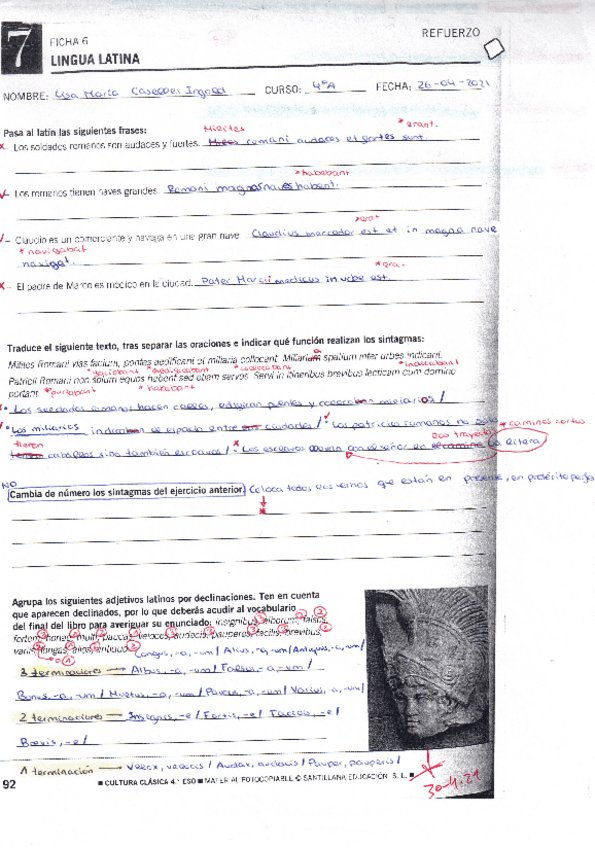 7
FICHA 6
REFUERZO
LINGUA LATINA
NOMBRE: CURSO: 4ºA FECHA: 26-04-2021
Pasa al latín las siguientes frases:
Milites
* erant.
x Los soldados romanos son audaces y fuertes. romani audaces et fortes sunt.
* habebant
Los romanos tienen naves grandes. Romani magnas naves habent.
* erat
Claudio es un comerciante y navega en una gran nave. Claudius mercador est et in magna nave
* navigabat
navigat.
* era.
x El padre de Marco es médico en la ciudad. Pater Marci medicus in urbe est.
Traduce el siguiente texto, tras separar las oraciones e indicar qué función realizan los sintagmas:
Milites Romani vias faciunt, pontes aedificant et miliaria collocant. Miliarium spatium inter urbes indicant.
* faciebant * aedificabant * collocabant * indicabant
Patricii Romani non solum equos habent sed etiam servos. Servi in itineribus brevibus lecticam cum domino
* portabant * habebant
portant.
Los soldados romanos hacen calles, edifican puentes y colocan miliarios /
Los miliarios indican el espacio entre ciudades / Los patricios romanos no solo * caminos cortos
tienen caballos sino también esclavos / Los esclavos con el señor en la litera
NO
Cambia de número los sintagmas del ejercicio anterior. Coloca todos los verbos que están en presente, en pretérito
Agrupa los siguientes adjetivos latinos por declinaciones. Ten en cuenta
que aparecen declinados, por lo que deberás acudir al vocabulario
del final del libro para averiguar su enunciado: insignibus, alborum, falsis,
fortem, bonae, multi, paucas, veloces, audacis, pauperos, facilis, brevibus,
varii, longas, altos, antiquo Longus, -a, -um / Altus, -a, -um / Antiquus, -a, -um /
3 terminaciones → Albus, -a, -um / Falsus, -a, -um /
Bonus, -a, -um / Multus, -a, -um / Paucus, -a, -um / Varius, -a, -um /
2 terminaciones → Insignis, -e / Fortis, -e / Facilis, -e /
Brevis, -e /
1 terminación → Velox, velocis / Audax, audacis / Pauper, pauperis /
92
■ CULTURA CLÁSICA 4.º ESO ■ MATERIAL FOTOCOPIABLE © SANTILLANA EDUCACIÓN, S. L. ■
30-4-21